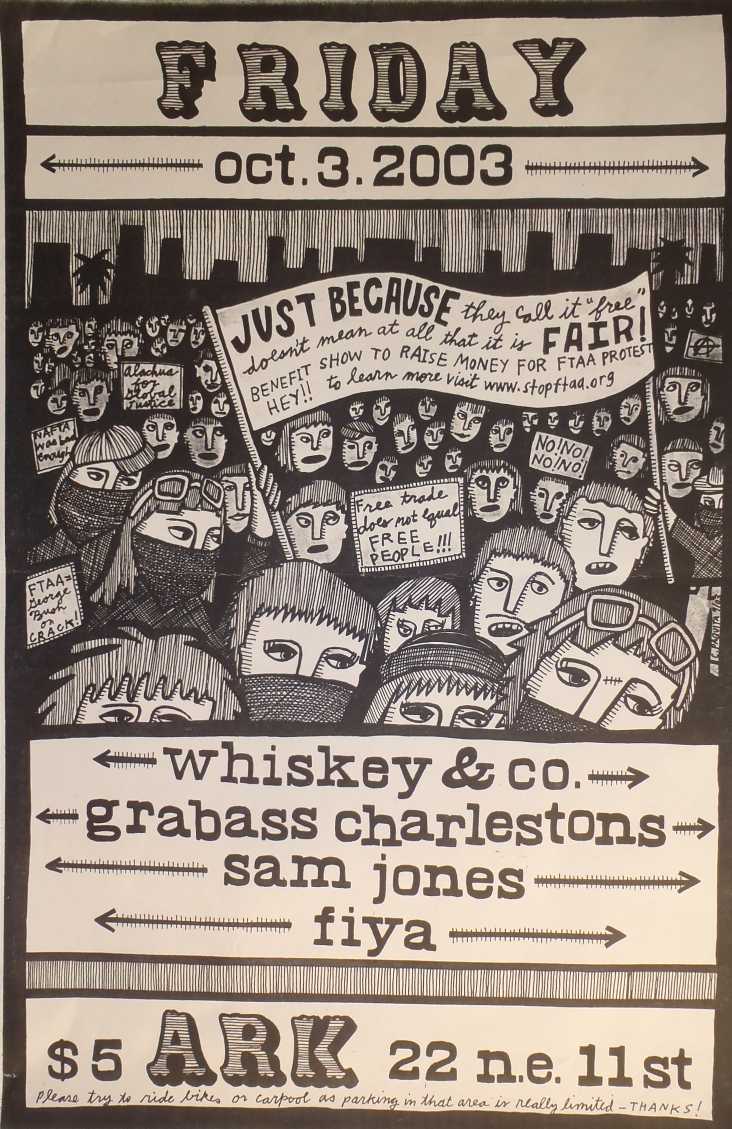 FRIDAY
oct. 3. 2003
JUST BECAUSE they call it "free"
doesn't mean at all that it is FAIR!
BENEFIT SHOW TO RAISE MONEY FOR FTAA PROTEST
HEY!! to learn more visit www.stopftaa.org
Alachua
for
Global
Justice
NAFTA
was bad
enough
NO! NO!
NO! NO!
Free trade
does not equal
FREE
PEOPLE!!!
FTAA =
George
Bush
on
CRACK!
whiskey & co.
grabass charlestons
sam jones
fiya
$5 ARK 22 n.e. 11 st
Please try to ride bikes or carpool as parking in that area is really limited - THANKS!